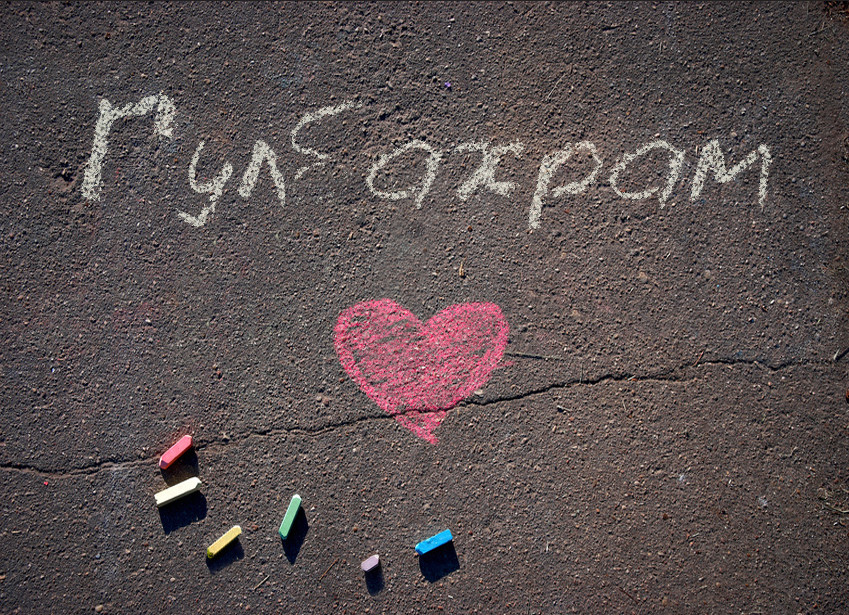 Гулбахрам